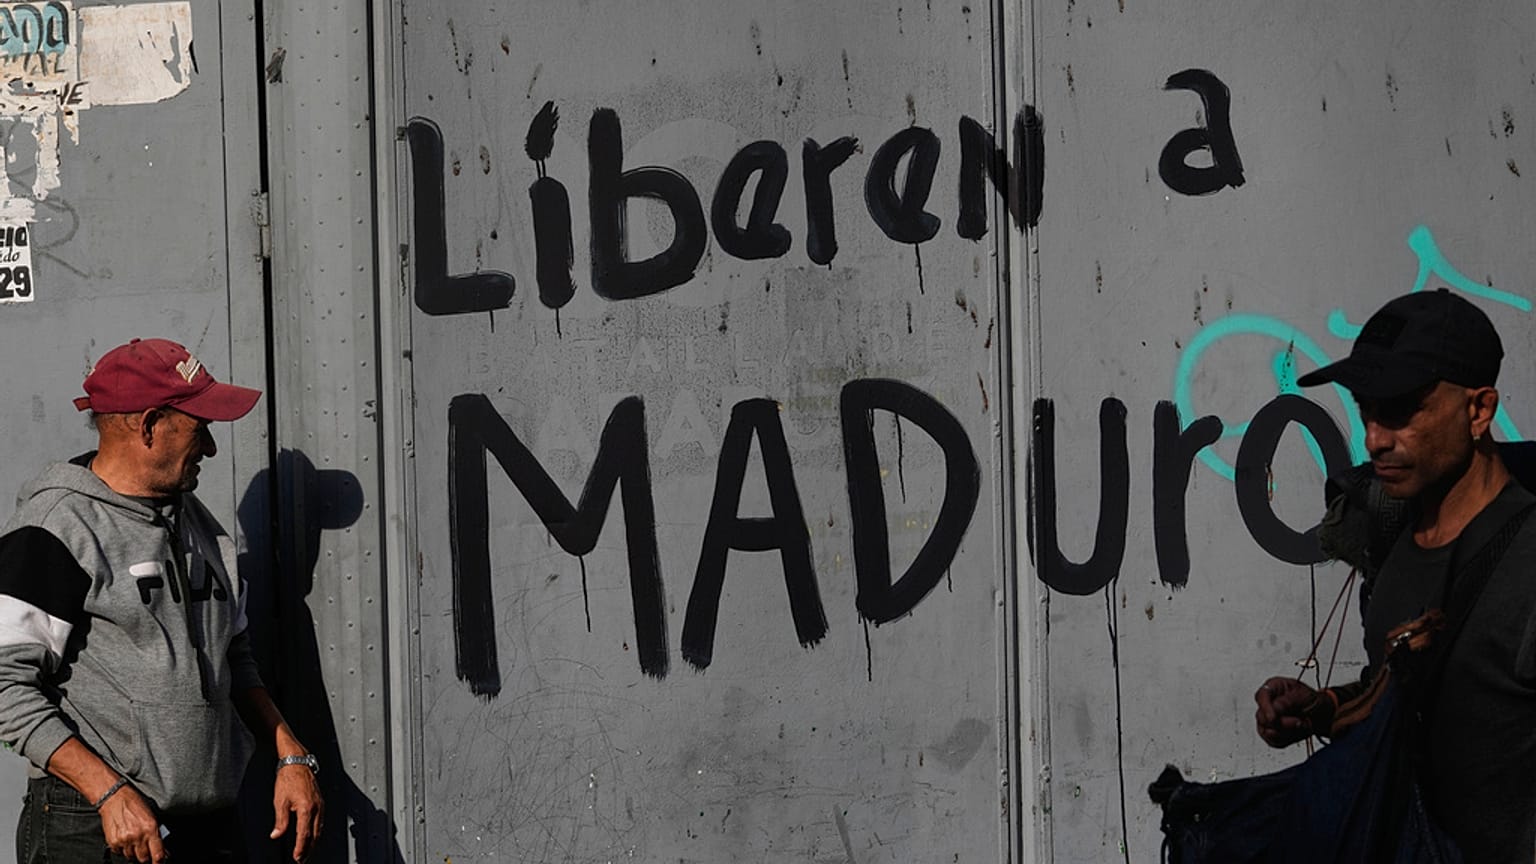 Liberen a
MADUro
FILA
29